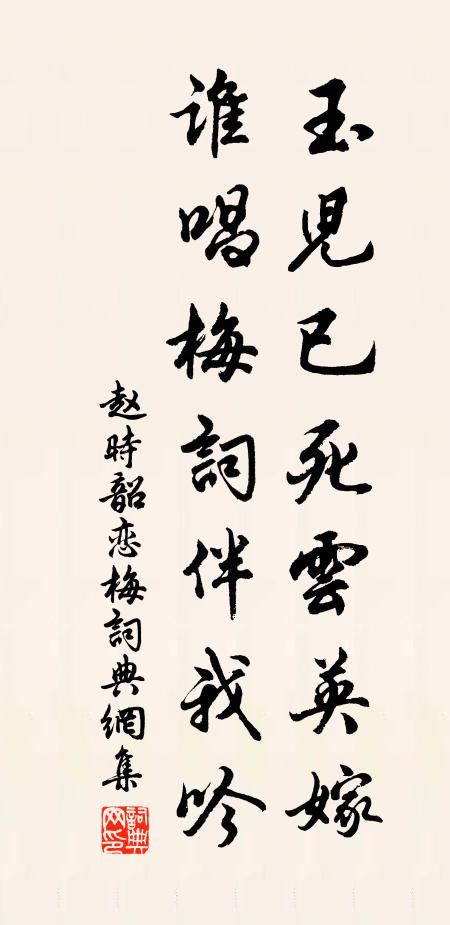 玉児已死雲英嫁
谁唱梅詞伴我吟
赵時韶恋梅詞典網集
詞典
网印